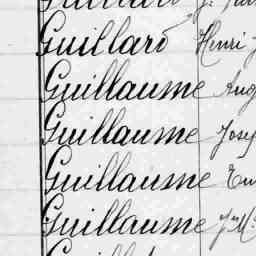 Guillard Henri J
Guillaume Aug
Guillaume Jose
Guillaume Em
Guillaume